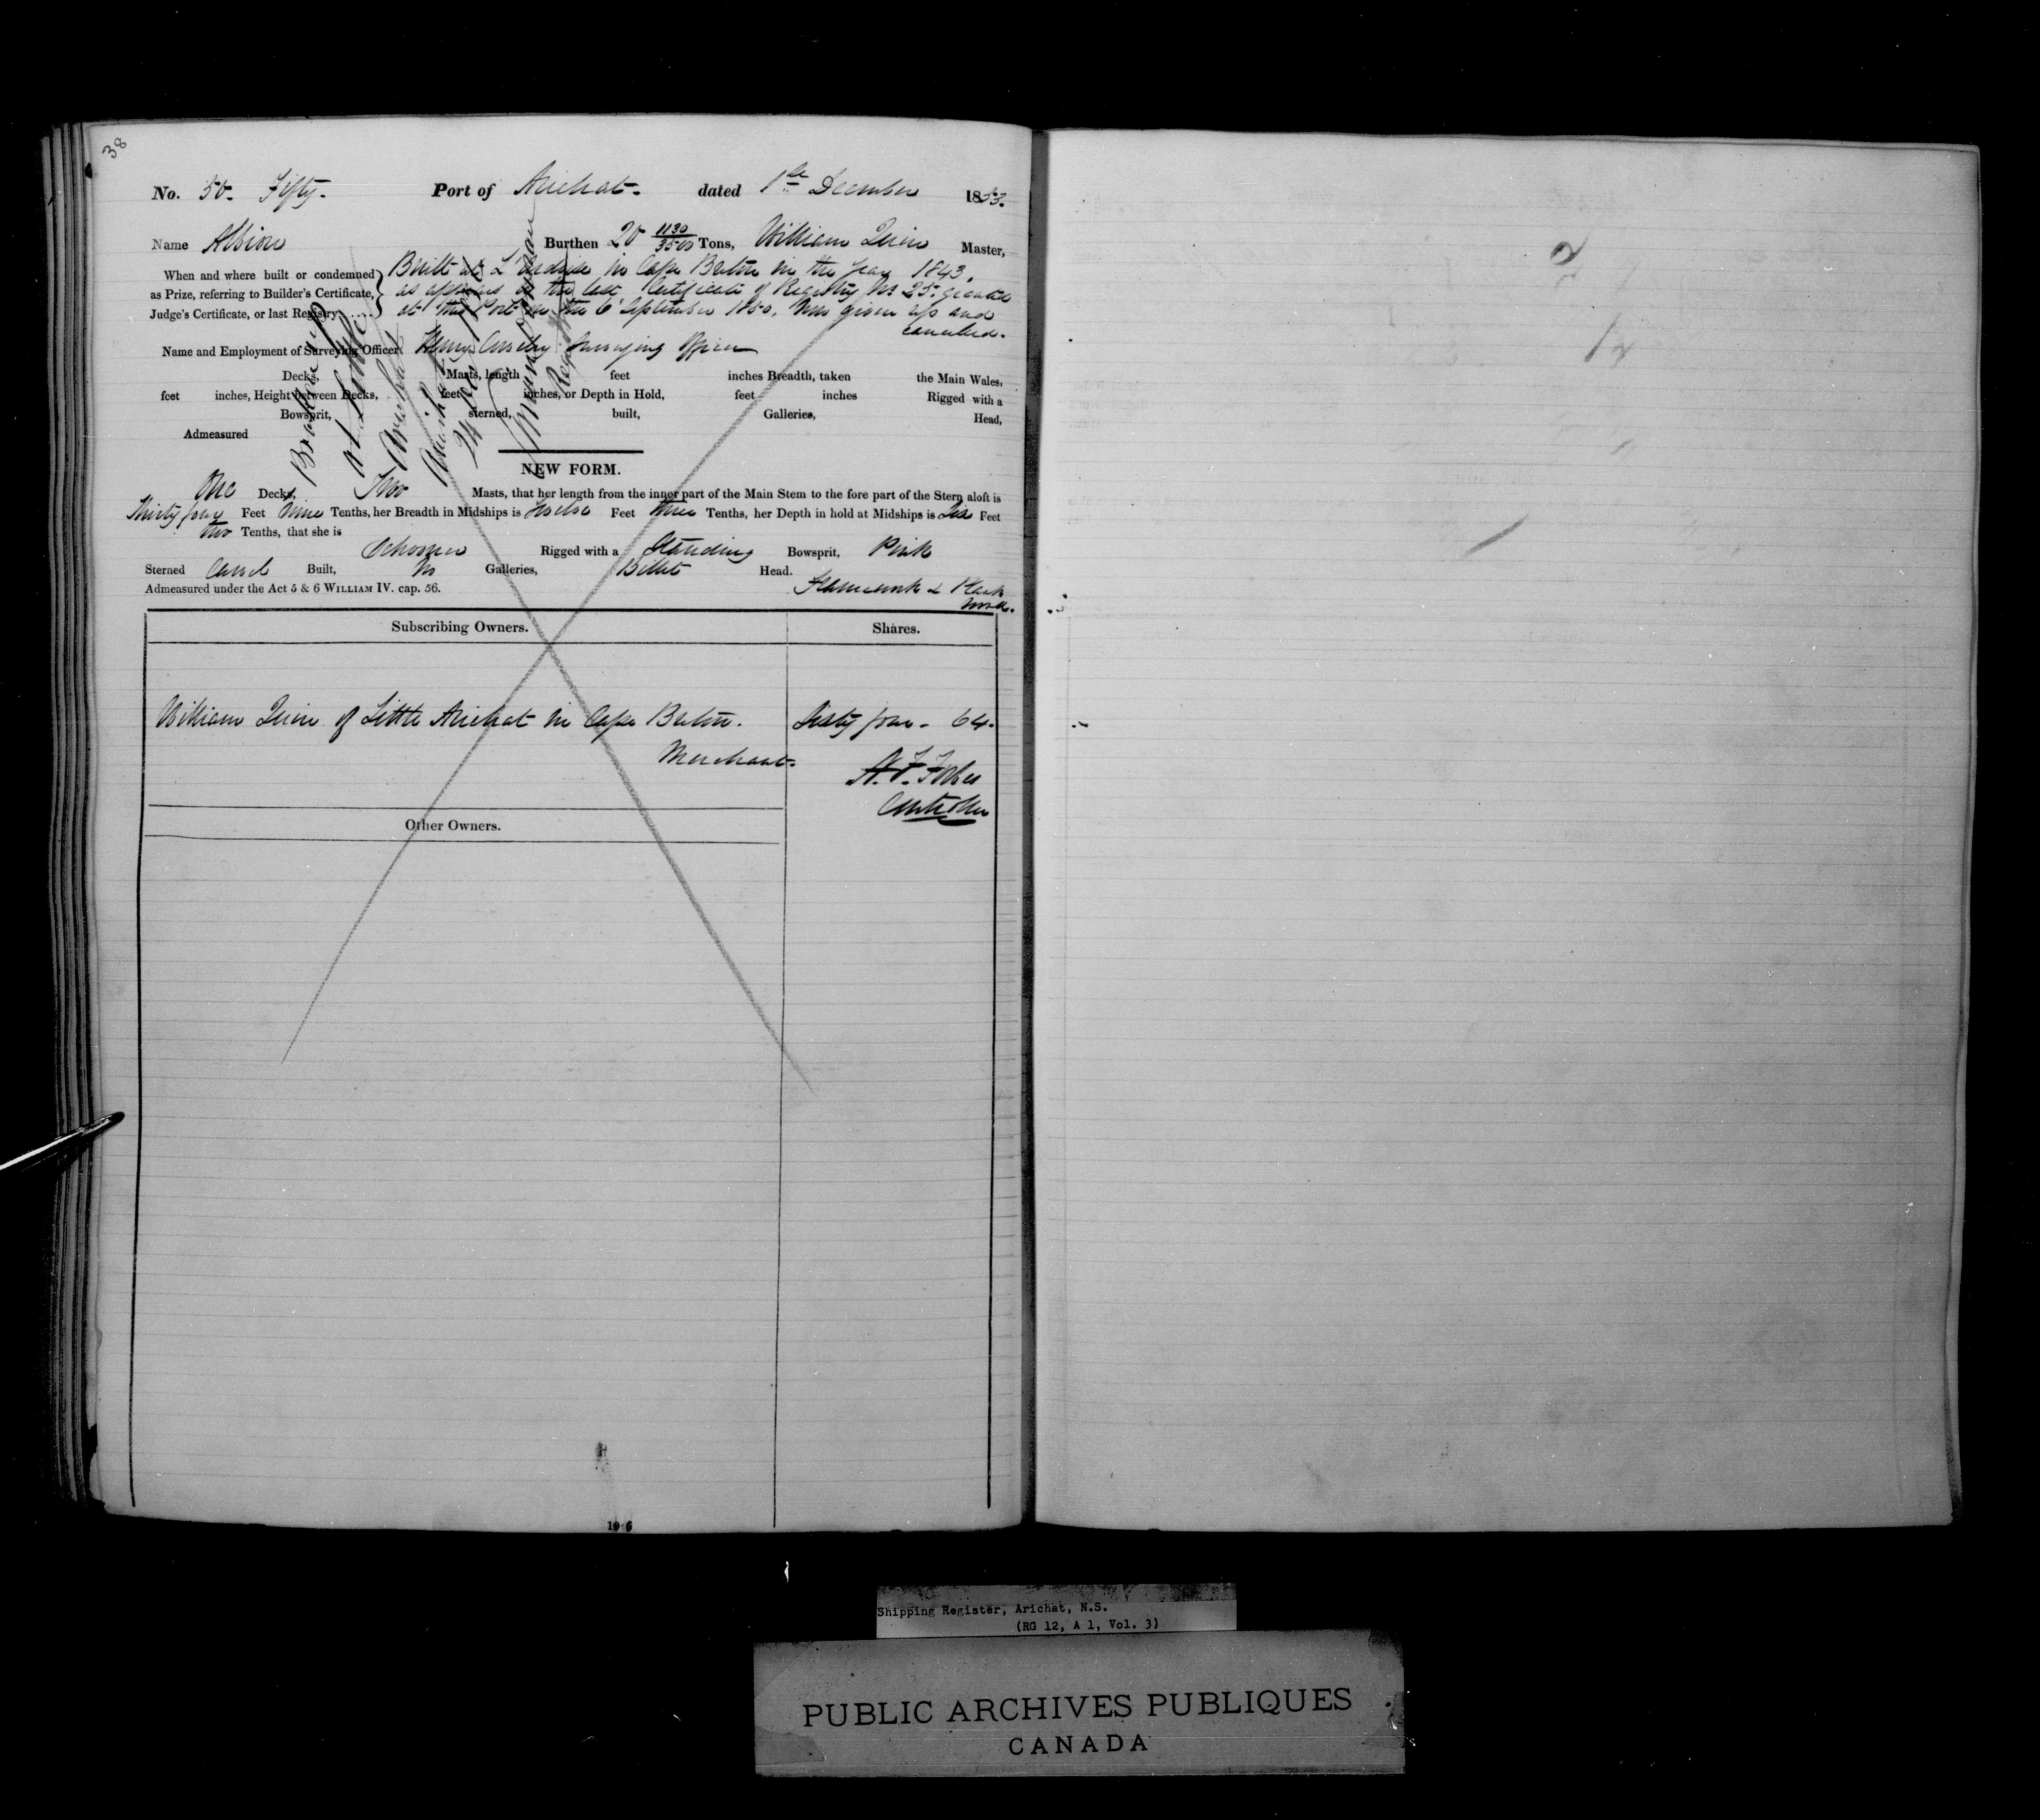 38
No. 50. Fifty. Port of Arichat. dated 1st December 1853.
Name Albion Burthen 20 1130/3500 Tons, William Quin Master,
When and where built or condemned as Prize, referring to Builder's Certificate, Judge's Certificate, or last Registry .....
Built at L'Ardoise in Cape Breton in the year 1843,
as appears by the last Certificate of Registry No 25. granted
at this Port on the 6 September 1850, Now given up and
cancelled.
Name and Employment of Surveying Officer Henry Surveying Officer
Decks, Masts, length feet inches Breadth, taken the Main Wales,
feet inches, Height between Decks, feet inches, or Depth in Hold, feet inches Rigged with a
Bowsprit, sterned, built, Galleries, Head,
Admeasured
Broken up
at
Arichat
Arichat
24
Registrar
NEW FORM.
One Decks, Two Masts, that her length from the inner part of the Main Stem to the fore part of the Stern aloft is
Thirty four Feet Nine Tenths, her Breadth in Midships is Twelve Feet three Tenths, her Depth in hold at Midships is Six Feet
two Tenths, that she is
Schooner Rigged with a Standing Bowsprit, Pink
Sterned Carvel Built, No Galleries, Billet Head.
Admeasured under the Act 5 & 6 WILLIAM IV. cap. 56. Framework & Plank
Wood.
Subscribing Owners. Shares.
William Quin of Little Arichat in Cape Breton. Sixty four - 64.
Merchant.
Controller
Other Owners.
10 6
Shipping Register, Arichat, N.S.
(RG 12, A 1, Vol. 3)
PUBLIC ARCHIVES PUBLIQUES
CANADA